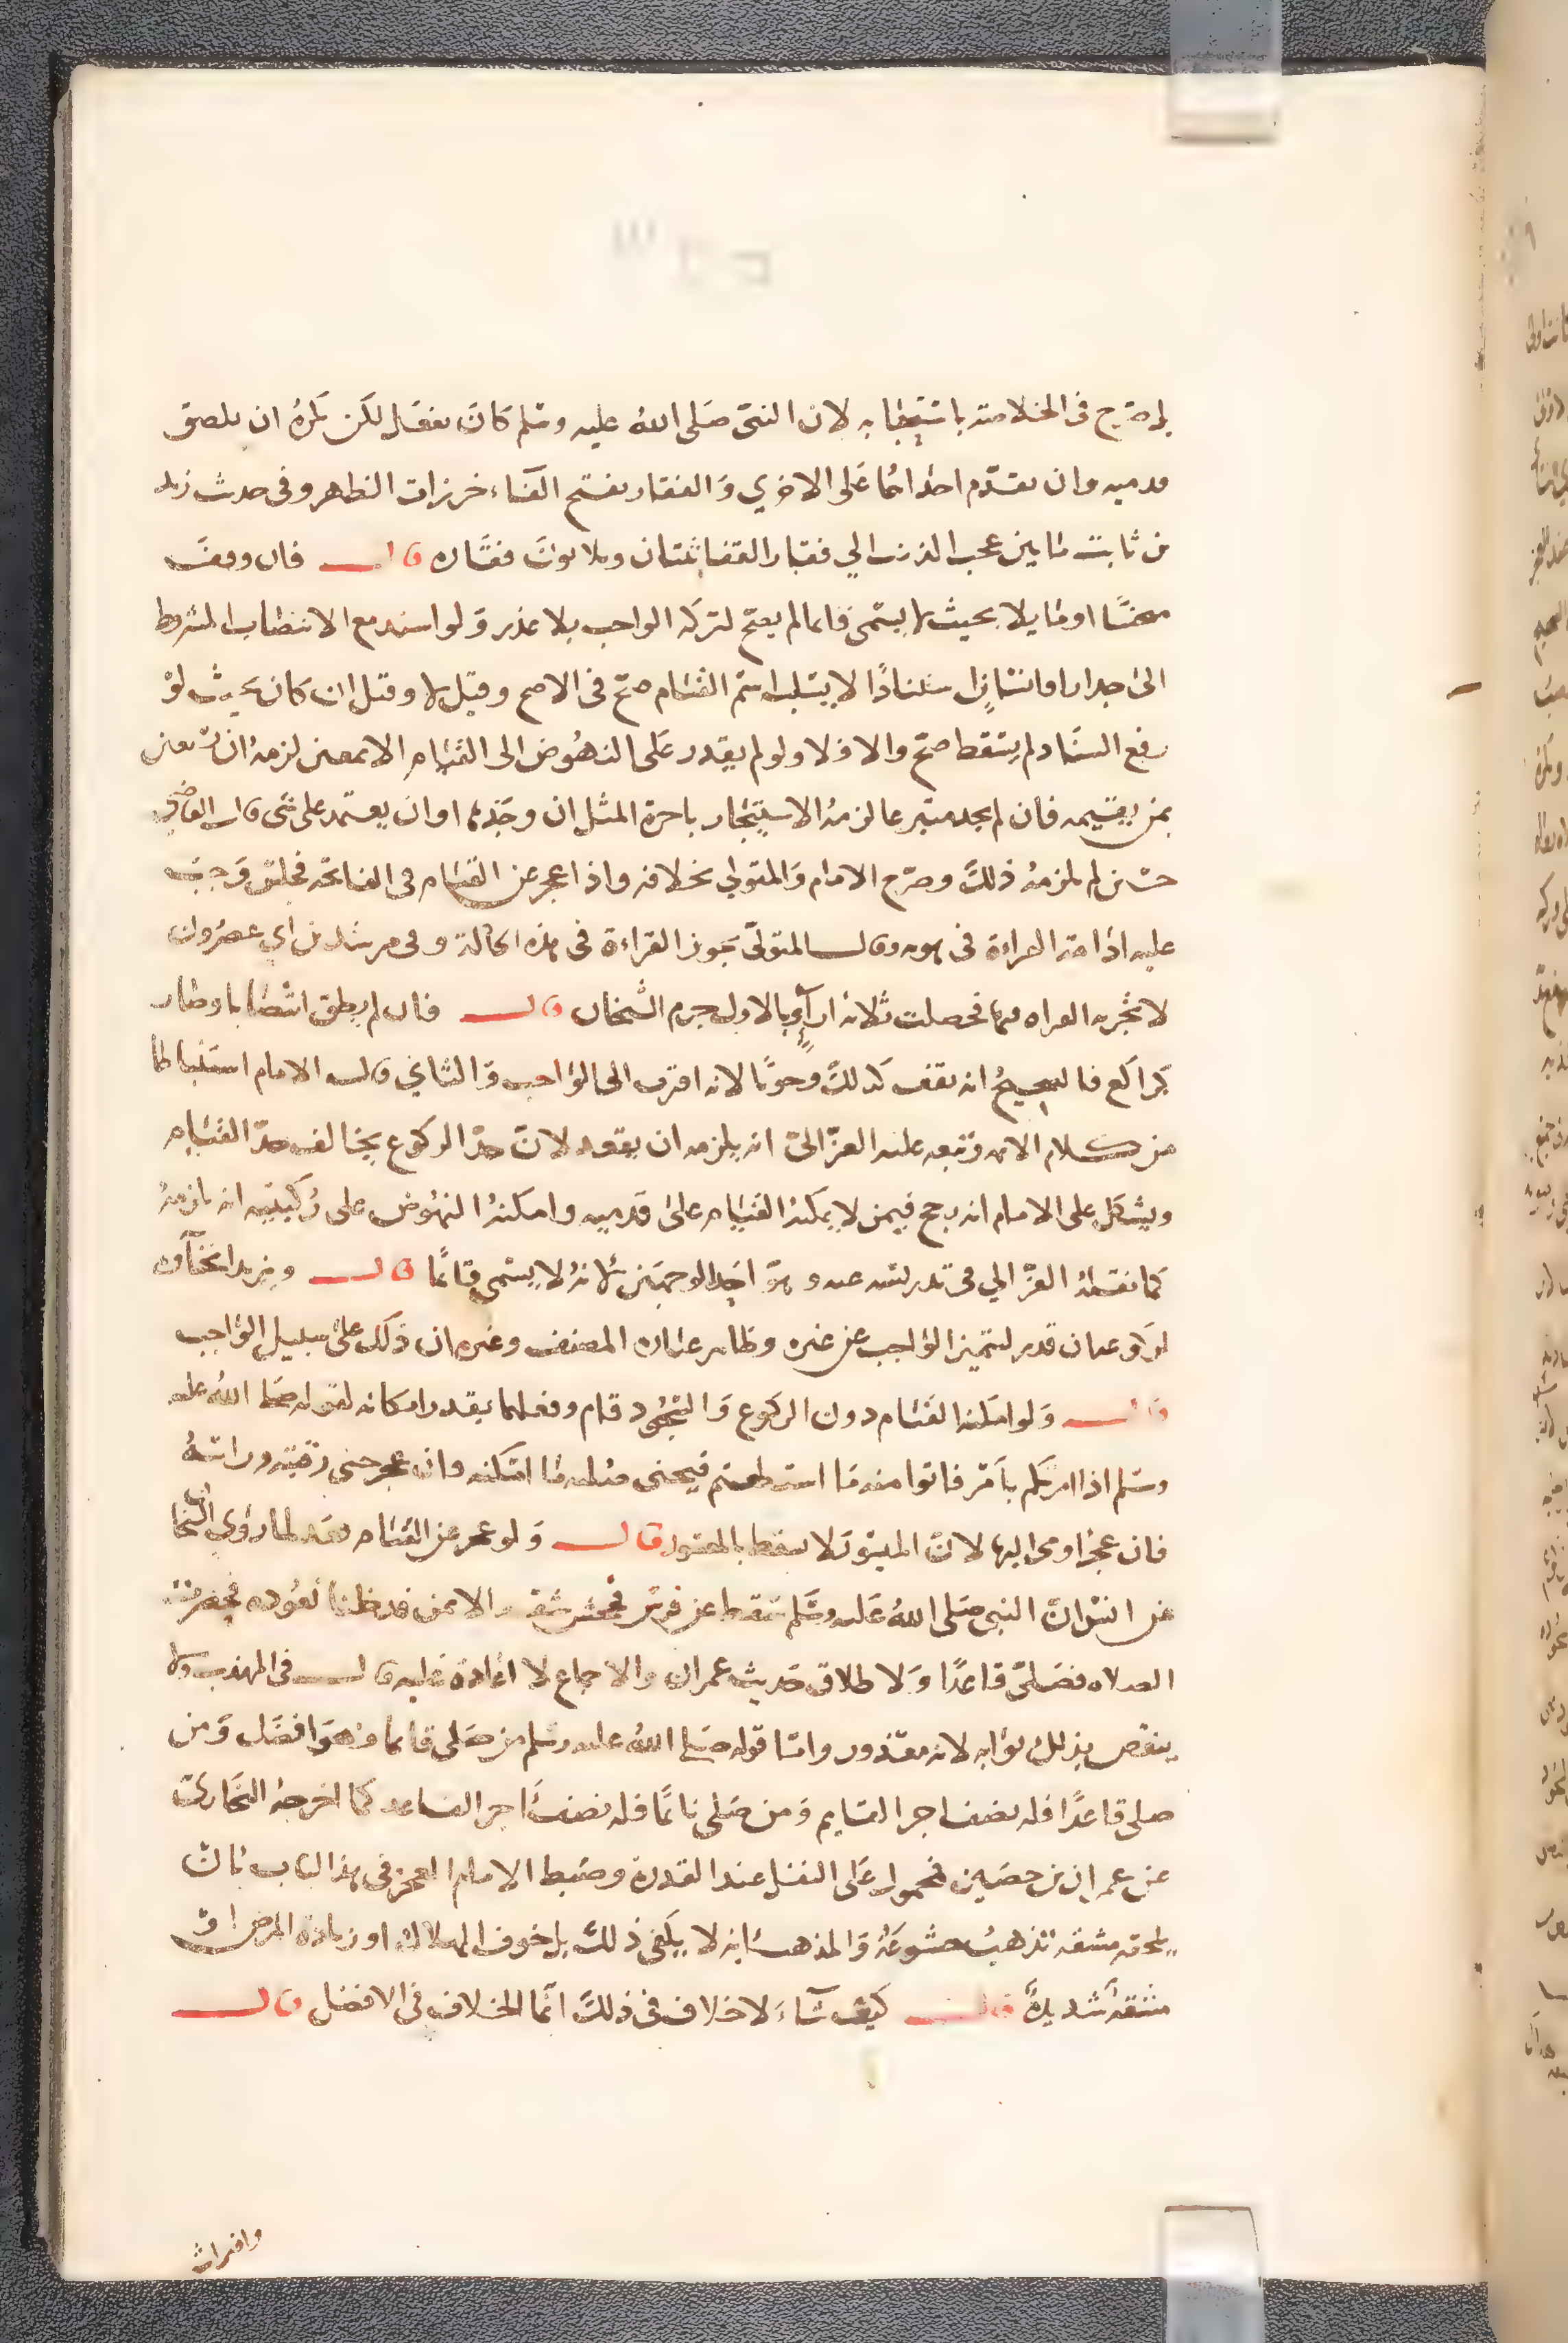 بل صرح في الخلاصة باستحبابه لان النبي صلى الله عليه وسلم كان يفعله لكن يكره ان يلصق
قدميه وان يقدم احداهما على الاخرى والفقار بفتح الفاء خرزات الظهر وفي حديث زيد
بن ثابت ما بين عجب الذنب الي فقار القفا ثنتان وثلاثون فقاره قال فان وقف
منحنيا او مايلا بحيث لا يسمى قايما لم يصح لتركه الواجب بلا عذر ولو استند مع الانتصاب المشروط
الى جدار او انسان استنادا لا يسلب اسم القيام صح في الاصح وقيل لا وقيل ان كان بحيث لو
رفع السناد لم يسقط صح والا فلا ولو لم يقدر على النهوض الى القيام الا بمعين لزمه ان يستعين
بمن يقيمه فان لم يجد متبرعا لزمه الاستيجار باجرة المثل ان وجدها او ان يعتمد على شى قال القاضي
حسين لم يلزمه ذلك وصرح الامام والمتولي بخلافه واذا عجز عن القيام في الفاتحه وجب
عليه ادامة القراءة في هويه وقال المتولي يجوز القراءة في هذه الحالة وفي مرشد بن ابي عصرون
لا تجزيه القراه فيها فحصلت ثلاثة ارآء وبالاول جزم الشيخان قال فان لم يطق انتصابا وصار
كراكع فالصحيح انه يقف كذلك وجوبا لانه اقرب الى الواجب والثاني قاله الامام استنباطا
من كلام الايمه وتبعه عليه الغزالي انه يلزمه ان يقعد لان حد الركوع يخالف حد القيام
ويشكل على الامام انه رجح فيمن لا يمكنه القيام على قدميه وامكنه النهوض على ركبتيه انه يلزمه
كما نقله الغزالي في تدريسه عنه وهو احد الوجهين لانه لا يسمى قائما قال ويزيد انحناءه
لركوعه ان قدر لتميز الواجب عن غيره وظاهر عباره المصنف وغيره ان ذلك على سبيل الواجب
قال ولو امكنه القيام دون الركوع والسجود قام وفعلهما بقدر امكانه لقوله صلى الله عليه
وسلم اذا امرتكم بامر فاتوا منه ما استطعتم فيحنى صلبه ما امكنه وان عجز حنى رقبته وراسه
فان عجز اومى اليها لان الميسور لا يسقط بالمعسور قال ولو عجز عن القيام قعد لما روى البخاري
عن انس ان النبي صلى الله عليه وسلم سقط عن فرس فجحش شقه الايمن فدخلنا نعوده فحضرت
الصلاه فصلى قاعدا ولاطلاق حديث عمران والاجماع لا اعادة عليه قال في المهذب ولا
ينقص بذلك ثوابه لانه معذور واما قوله صلى الله عليه وسلم من صلى قايما فهو افضل ومن
صلى قاعدا فله نصف اجر القايم ومن صلى نائما فله نصف اجر القاعد كما اخرجه البخاري
عن عمران بن حصين فمحمول على النفل عند القدرة وضبط الامام العجز في هذا الباب بان
يلحقه مشقه تذهب خشوعه والمذهب انه لا يكفي ذلك بل خوف الهلاك او زيادة المرض او
مشقة شديدة قال كيف شاء لا خلاف في ذلك انما الخلاف في الافضل قال
وافتراش